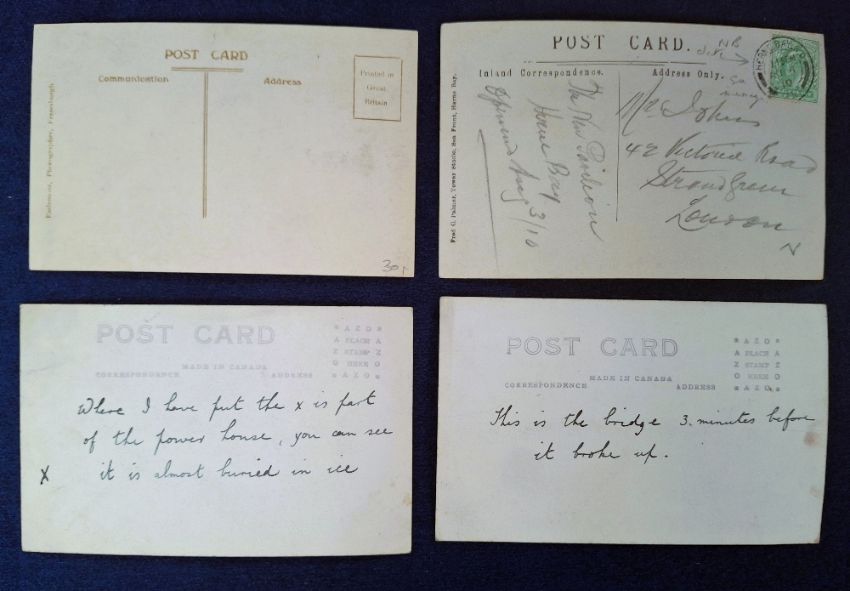 POST CARD
Communication
Address
Printed in
Great
Britain
Photographer, Fraserburgh
30
POST CARD.
Inland Correspondence.
Address Only.
Fred C. Palmer, Tower Studio, Sea Front, Herne Bay.
The New Pavilion
Herne Bay
Opened Aug 3/10
NB
42 Victoria Road
Stroud Green
London
N
POST CARD
MADE IN CANADA
CORRESPONDENCE
ADDRESS
AZO
PLACE
STAMP
HERE
AZO
Where I have put the x is part
of the power house, you can see
x it is almost buried in ice
POST CARD
MADE IN CANADA
CORRESPONDENCE
ADDRESS
AZO
PLACE
STAMP
HERE
AZO
This is the bridge 3. minutes before
it broke up.